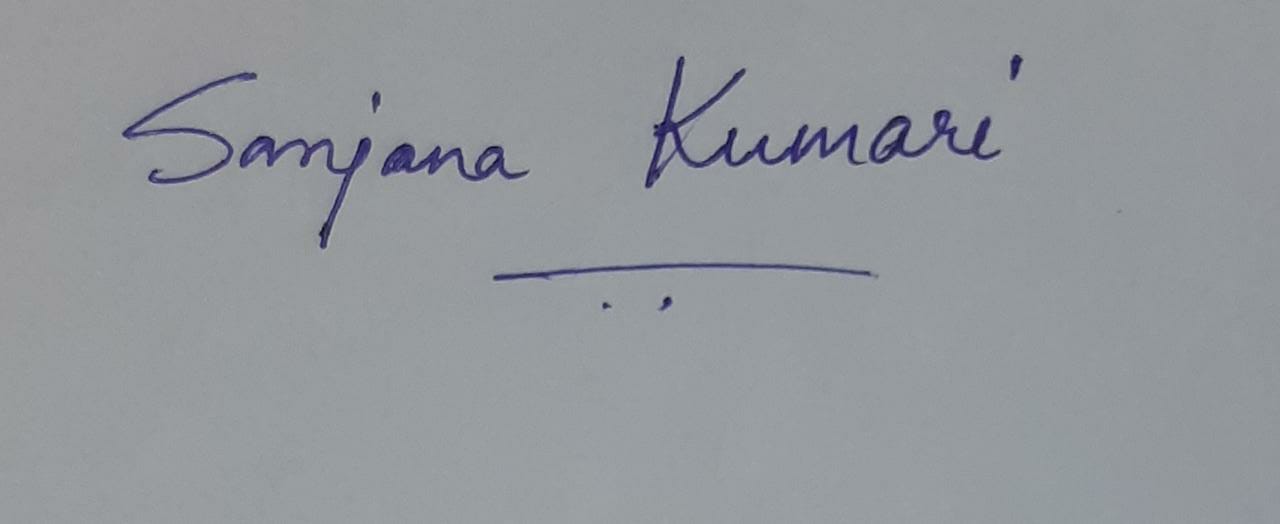 Sanjana Kumari